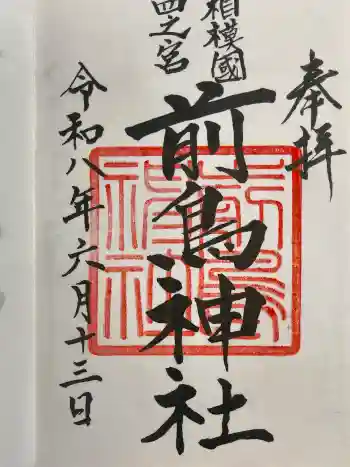 奉拝
相模國
四之宮
前鳥神社
令和八年六月十三日
前鳥神社